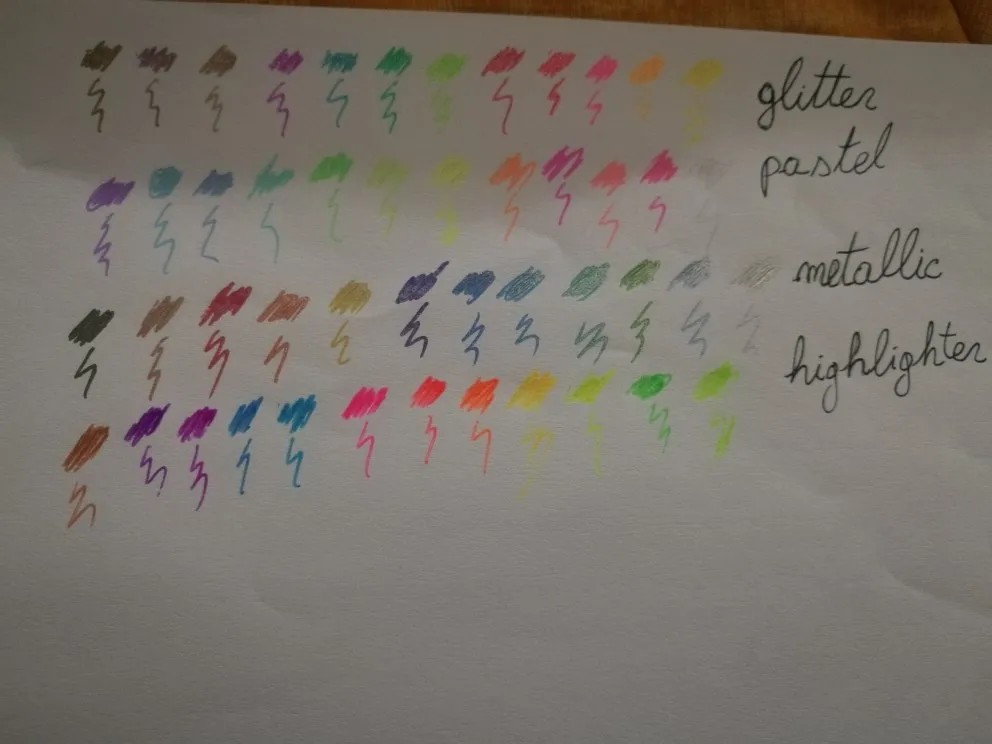 glitter
pastel
metallic
highlighter